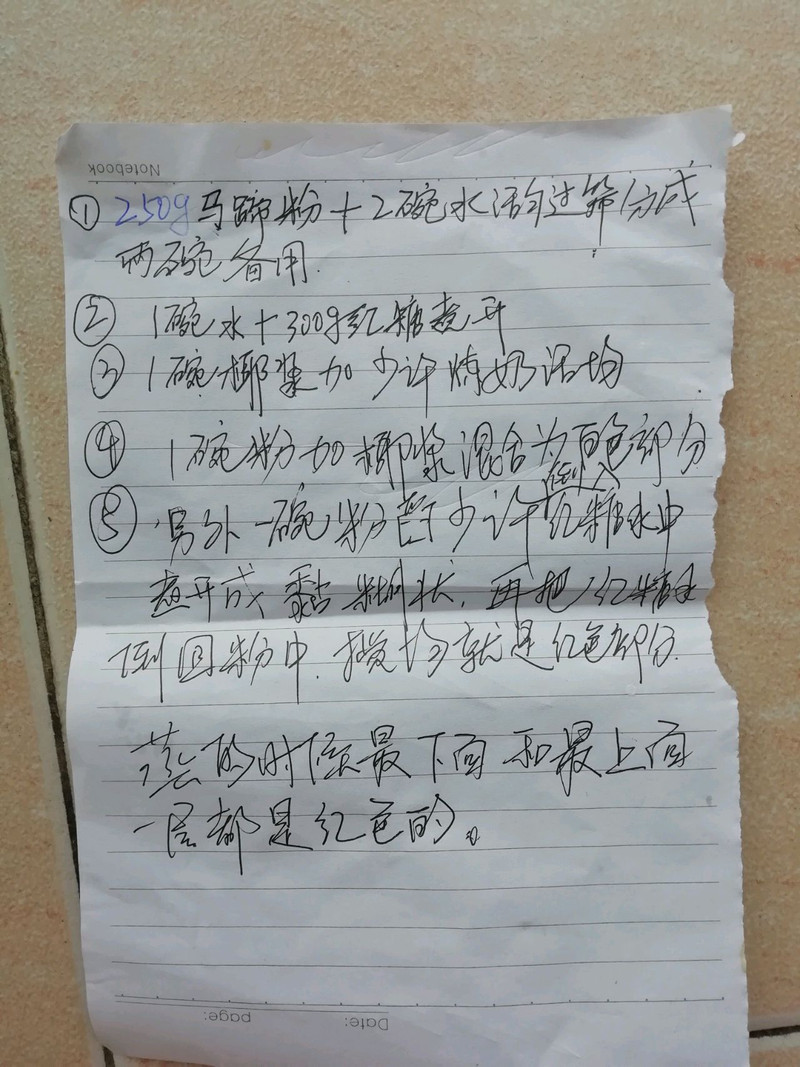 Notebook
① 250g马蹄粉+2碗水活匀过筛分成
两碗备用.
② 1碗水+300g红糖煮开
③ 1碗椰浆加少许炼奶活均
④ 1碗粉加椰浆混合为白色部分
⑤ 另外一碗粉留少许倒入红糖水中
煮开成黏糊状,再把红糖水
倒回粉中.搅均就是红色部分.
蒸的时候最下面和最上面
一层都是红色的。
Date:
page: